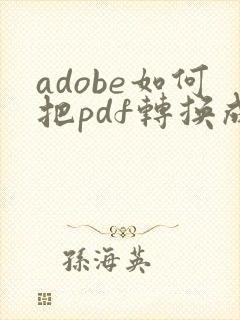 adobe如何
把pdf轉換成
孫海英